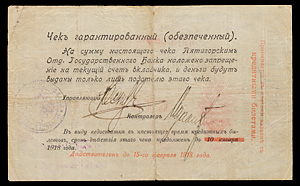 Чекъ гарантированный (обезпеченный).
На сумму настоящаго чека Пятигорскимъ
Отд. Государственнаго Банка наложено запреще-
ніе на текущій счетъ вкладчика, и деньги будутъ
выданы только лишь подателю этого чека.
Управляющій
Контролеръ
Въ виду недостатка въ настоящее время кредитныхъ би-
летовъ, срокъ дѣйствія этого чека продолженъ до 10 января
1918 года.
Дѣйствителенъ до 15-го февраля 1918 года